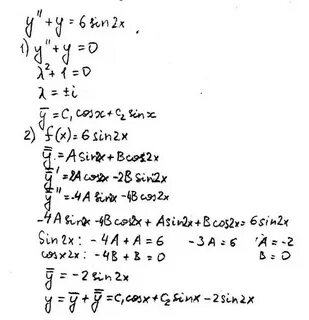 y'' + y = 6 sin 2x
1) y'' + y = 0
λ² + 1 = 0
λ = ± i
ȳ = C₁ cosx + C₂ sinx
2) f(x) = 6 sin 2x
y̿ = A sin2x + B cos2x
y̿' = 2A cos2x - 2B sin2x
y̿'' = -4A sin2x - 4B cos2x
-4A sin2x - 4B cos2x + A sin2x + B cos2x = 6 sin2x
Sin 2x: -4A + A = 6 -3A = 6 A = -2
cos2x: -4B + B = 0 B = 0
y̿ = -2 sin2x
y = ȳ + y̿ = C₁ cosx + C₂ sinx - 2 sin2x